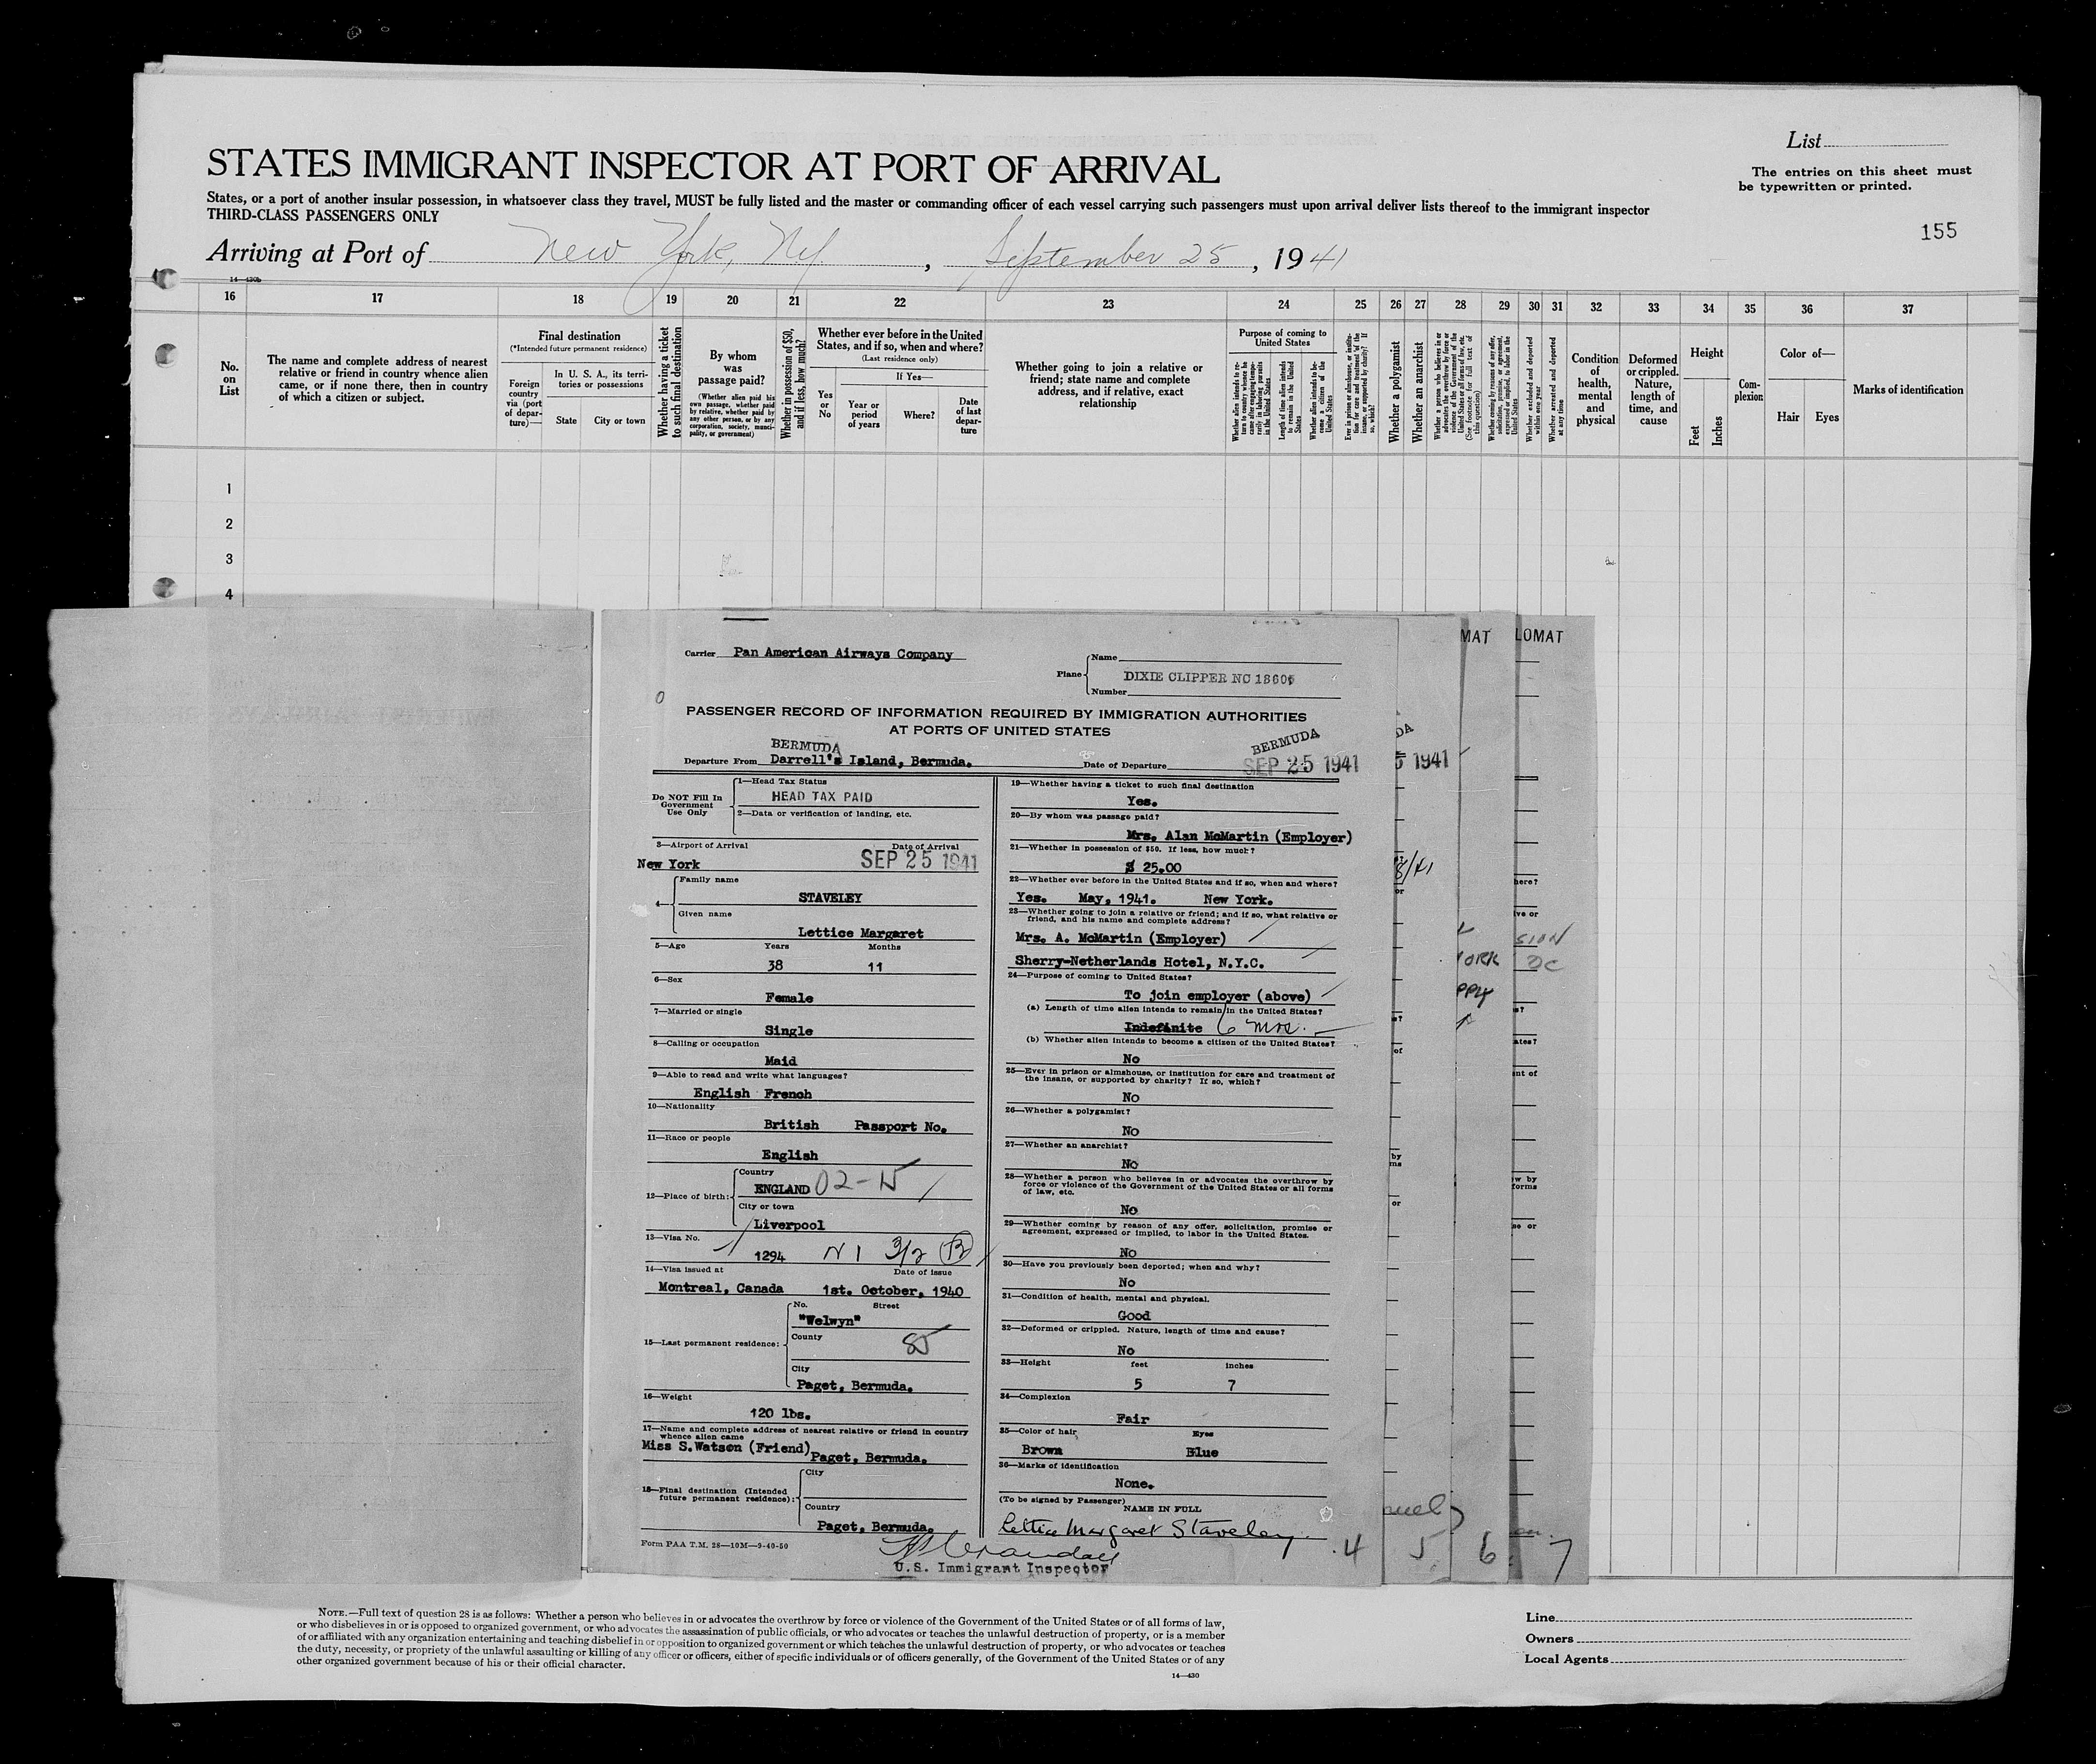 List
STATES IMMIGRANT INSPECTOR AT PORT OF ARRIVAL
The entries on this sheet must
be typewritten or printed.
States, or a port of another insular possession, in whatsoever class they travel, MUST be fully listed and the master or commanding officer of each vessel carrying such passengers must upon arrival deliver lists thereof to the immigrant inspector
THIRD-CLASS PASSENGERS ONLY
155
Arriving at Port of New York, NY, September 25, 1941
14-430b
16 17 18 19 20 21 22 23 24 25 26 27 28 29 30 31 32 33 34 35 36 37
No.
on
List
The name and complete address of nearest
relative or friend in country whence alien
came, or if none there, then in country
of which a citizen or subject.
Final destination
(*Intended future permanent residence)
Foreign
country
via (port
of depar-
ture)—
In U. S. A., its terri-
tories or possessions
State City or town
Whether having a ticket
to such final destination
By whom
was
passage paid?
(Whether alien paid his
own passage, whether paid
by relative, whether paid by
any other person, or by any
corporation, society, munici-
pality, or government)
Whether in possession of $50,
and if less, how much?
Whether ever before in the United
States, and if so, when and where?
(Last residence only)
If Yes—
Yes
or
No
Year or
period
of years
Where?
Date
of last
depar-
ture
Whether going to join a relative or
friend; state name and complete
address, and if relative, exact
relationship
Purpose of coming to
United States
Whether alien intends to re-
turn to country whence he
came after engaging tempo-
rarily in laboring pursuits
in the United States
Length of time alien intends
to remain in the United
States
Whether alien intends to be-
come a citizen of the
United States
Ever in prison or almshouse, or institu-
tion for care and treatment of the
insane, or supported by charity? If
so, which?
Whether a polygamist
Whether an anarchist
Whether a person who believes in or
advocates the overthrow by force or
violence of the Government of the
United States or all forms of law, etc.
(See footnote for full text of
this question)
Whether coming by reason of any offer,
solicitation, promise, or agreement,
expressed or implied, to labor in the
United States
Whether excluded and deported
within one year
Whether arrested and deported
at any time
Condition
of
health,
mental
and
physical
Deformed
or crippled.
Nature,
length of
time, and
cause
Height
Feet
Inches
Com-
plexion
Color of—
Hair Eyes
Marks of identification
1
2
3
4
Carrier Pan American Airways Company
Plane
Name
DIXIE CLIPPER NC 18605
Number
PASSENGER RECORD OF INFORMATION REQUIRED BY IMMIGRATION AUTHORITIES
AT PORTS OF UNITED STATES
BERMUDA
Departure From Darrell's Island, Bermuda.
BERMUDA
Date of Departure SEP 25 1941
Do NOT Fill In
Government
Use Only
1—Head Tax Status
HEAD TAX PAID
2—Data or verification of landing, etc.
3—Airport of Arrival Date of Arrival
New York SEP 25 1941
4—
Family name
STAVELEY
Given name
Lettice Margaret
5—Age Years Months
38 11
6—Sex
Female
7—Married or single
Single
8—Calling or occupation
Maid
9—Able to read and write what languages?
English French
10—Nationality
British Passport No.
11—Race or people
English
12—Place of birth:
Country
ENGLAND 02-15
City or town
Liverpool
13—Visa No.
1294 N 1 3/2 B
14—Visa issued at Date of issue
Montreal, Canada 1st. October, 1940
15—Last permanent residence:
No. Street
"Welwyn"
County
85
City
Paget, Bermuda.
16—Weight
120 lbs.
17—Name and complete address of nearest relative or friend in country
whence alien came
Miss S.Watson (Friend) Paget, Bermuda.
18—Final destination (Intended
future permanent residence):
City
Country
Paget, Bermuda.
Form PAA T.M. 28—10M—9-40-50
19—Whether having a ticket to such final destination
Yes.
20—By whom was passage paid?
Mrs. Alan McMartin (Employer)
21—Whether in possession of $50. If less, how much?
$ 25.00
22—Whether ever before in the United States and if so, when and where?
Yes. May, 1941. New York.
23—Whether going to join a relative or friend; and if so, what relative or
friend, and his name and complete address?
Mrs. A. McMartin (Employer)
Sherry-Netherlands Hotel, N.Y.C.
24—Purpose of coming to United States?
To join employer (above)
(a) Length of time alien intends to remain in the United States?
Indefinite 6 mos.
(b) Whether alien intends to become a citizen of the United States?
No
25—Ever in prison or almshouse, or institution for care and treatment of
the insane, or supported by charity? If so, which?
No
26—Whether a polygamist?
No
27—Whether an anarchist?
No
28—Whether a person who believes in or advocates the overthrow by
force or violence of the Government of the United States or all forms
of law, etc.
No
29—Whether coming by reason of any offer, solicitation, promise or
agreement, expressed or implied, to labor in the United States.
No
30—Have you previously been deported; when and why?
No
31—Condition of health, mental and physical.
Good
32—Deformed or crippled. Nature, length of time and cause?
No
33—Height feet inches
5 7
34—Complexion
Fair
35—Color of hair Eyes
Brown Blue
36—Marks of identification
None.
(To be signed by Passenger)
NAME IN FULL
Lettice Margaret Staveley.
U.S. Immigrant Inspector
MAT LOMAT
DA
5 1941
8/41
or
here?
ive or
SION
YORK DC
PPLY
s?
of
ates?
ent of
by
ms
w by
forms
or
se or
4 5 6 7
NOTE.—Full text of question 28 is as follows: Whether a person who believes in or advocates the overthrow by force or violence of the Government of the United States or of all forms of law,
or who disbelieves in or is opposed to organized government, or who advocates the assassination of public officials, or who advocates or teaches the unlawful destruction of property, or is a member
of or affiliated with any organization entertaining and teaching disbelief in or opposition to organized government or which teaches the unlawful destruction of property, or who advocates or teaches
the duty, necessity, or propriety of the unlawful assaulting or killing of any officer or officers, either of specific individuals or of officers generally, of the Government of the United States or of any
other organized government because of his or their official character.
14—430
Line
Owners
Local Agents